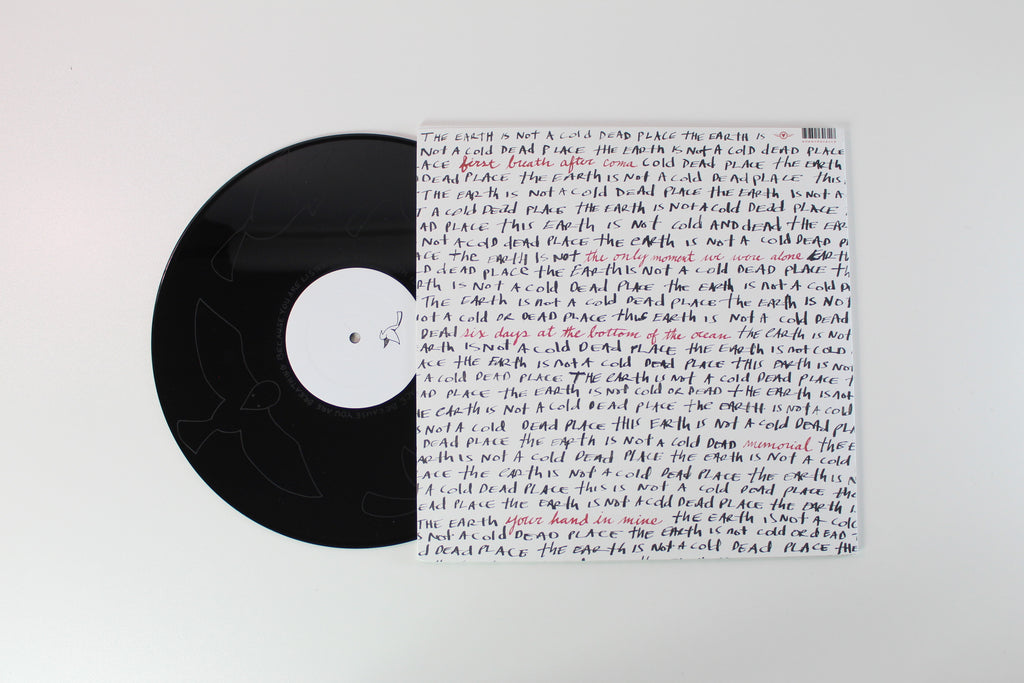 THE EARTH IS NOT A COLD DEAD PLACE THE EARTH IS
NOT A COLD DEAD PLACE THE EARTH IS NOT A COLD DEAD PLACE
ACE first breath after coma COLD DEAD PLACE THE EARTH
DEAD PLACE THE EARTH IS NOT A COLD DEAD PLACE THIS
THE EARTH IS NOT A COLD DEAD PLACE THE EARTH IS NOT A
T A COLD DEAD PLACE THE EARTH IS NOT A COLD DEAD PLACE
AD PLACE THIS EARTH IS NOT COLD AND DEAD THE EAR
NOT A COLD DEAD PLACE THE EARTH IS NOT A COLD DEAD P
ACE THE EARTH IS NOT the only moment we were alone EARTH
D DEAD PLACE THE EARTH IS NOT A COLD DEAD PLACE TH
RTH IS NOT A COLD DEAD PLACE THE EARTH IS NOT A COLD D
THE EARTH IS NOT A COLD DEAD PLACE THE EARTH IS NO
NOT A COLD OR DEAD PLACE THIS EARTH IS NOT A COLD DEAD
DEAD six days at the bottom of the ocean THE EARTH IS NOT
ARTH IS NOT A COLD DEAD PLACE THE EARTH IS NOT COLD
ACE THE EARTH IS NOT A COLD DEAD PLACE THIS EARTH IS
A COLD DEAD PLACE THE EARTH IS NOT A COLD DEAD PLACE TH
AD PLACE THE EARTH IS NOT COLD OR DEAD THE EARTH IS NOT
HE EARTH IS NOT A COLD DEAD PLACE THE EARTH IS NOT A COLD
S NOT A COLD DEAD PLACE THIS EARTH IS NOT A COLD DEAD PL
DEAD PLACE THE EARTH IS NOT A COLD DEAD memorial THE E
ARTH IS NOT A COLD DEAD PLACE THE EARTH IS NOT A COLD
ACE THE EARTH IS NOT A COLD DEAD PLACE THE EARTH IS N
T A COLD DEAD PLACE THIS IS NOT A COLD DEAD PLACE THE
EAD PLACE THE EARTH IS NOT A COLD DEAD PLACE THE EARTH IS
THE EARTH your hand in mine THE EARTH IS NOT A COLD
S NOT A COLD DEAD PLACE THE EARTH IS NOT COLD OR DEAD T
D DEAD PLACE THE EARTH IS NOT A COLD DEAD PLACE THE
BECAUSE YOU ARE LISTENING
BECAUSE YOU ARE